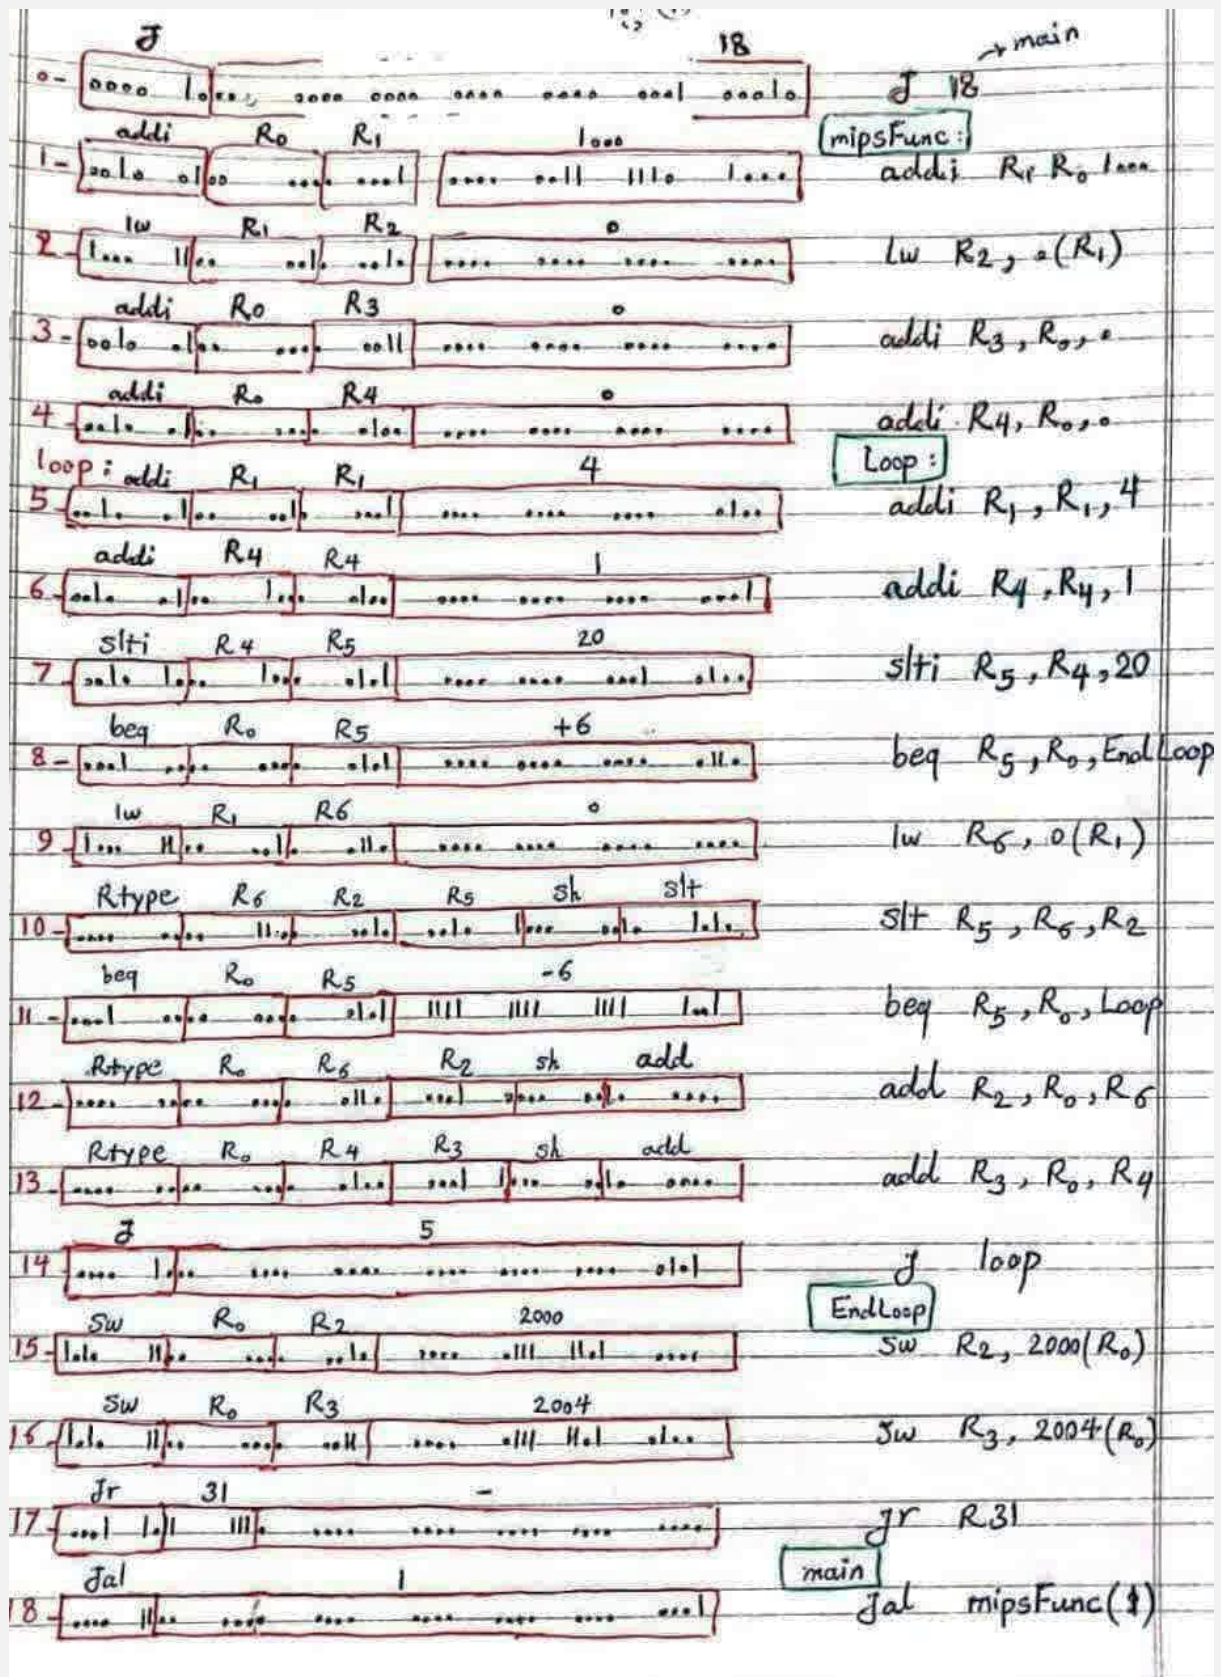 J 18 main
0- 0000 1000 0000 0000 0000 0000 0001 0010 J 18
addi R0 R1 1000 mipsFunc:
1- 0010 0000 0000 0001 0000 0011 1110 1000 addi R1 R0 1000
lw R1 R2 0
2- 1000 1100 0010 0010 0000 0000 0000 0000 lw R2, 0(R1)
addi R0 R3 0
3- 0010 0100 0000 0011 0000 0000 0000 0000 addi R3, R0, 0
addi R0 R4 0
4- 0010 0100 0000 0100 0000 0000 0000 0000 addi R4, R0, 0
loop: addi R1 R1 4 Loop:
5- 0010 0100 0010 0001 0000 0000 0000 0100 addi R1, R1, 4
addi R4 R4 1
6- 0010 0100 1000 0100 0000 0000 0000 0001 addi R4, R4, 1
slti R4 R5 20
7- 0010 1000 1000 0101 0000 0000 0001 0100 slti R5, R4, 20
beq R0 R5 +6
8- 0001 0000 0000 0101 0000 0000 0000 0110 beq R5, R0, EndLoop
lw R1 R6 0
9- 1000 1100 0010 0110 0000 0000 0000 0000 lw R6, 0(R1)
Rtype R6 R2 R5 sh slt
10- 0000 0000 1100 0010 0010 1000 0010 1010 slt R5, R6, R2
beq R0 R5 -6
11- 0001 0000 0000 0101 1111 1111 1111 1001 beq R5, R0, Loop
Rtype R0 R6 R2 sh add
12- 0000 0000 0000 0110 0001 0000 0010 0000 add R2, R0, R6
Rtype R0 R4 R3 sh add
13- 0000 0000 0000 0100 0001 1000 0010 0000 add R3, R0, R4
J 5
14- 0000 1000 0000 0000 0000 0000 0000 0101 J loop
sw R0 R2 2000 EndLoop
15- 1010 1100 0000 0010 0000 0111 1101 0000 sw R2, 2000(R0)
sw R0 R3 2004
16- 1010 1100 0000 0011 0000 0111 1101 0100 sw R3, 2004(R0)
Jr 31 -
17- 0001 1011 1110 0000 0000 0000 0000 0000 Jr R31
Jal 1 main
18- 0000 1100 0000 0000 0000 0000 0000 0001 Jal mipsFunc(1)